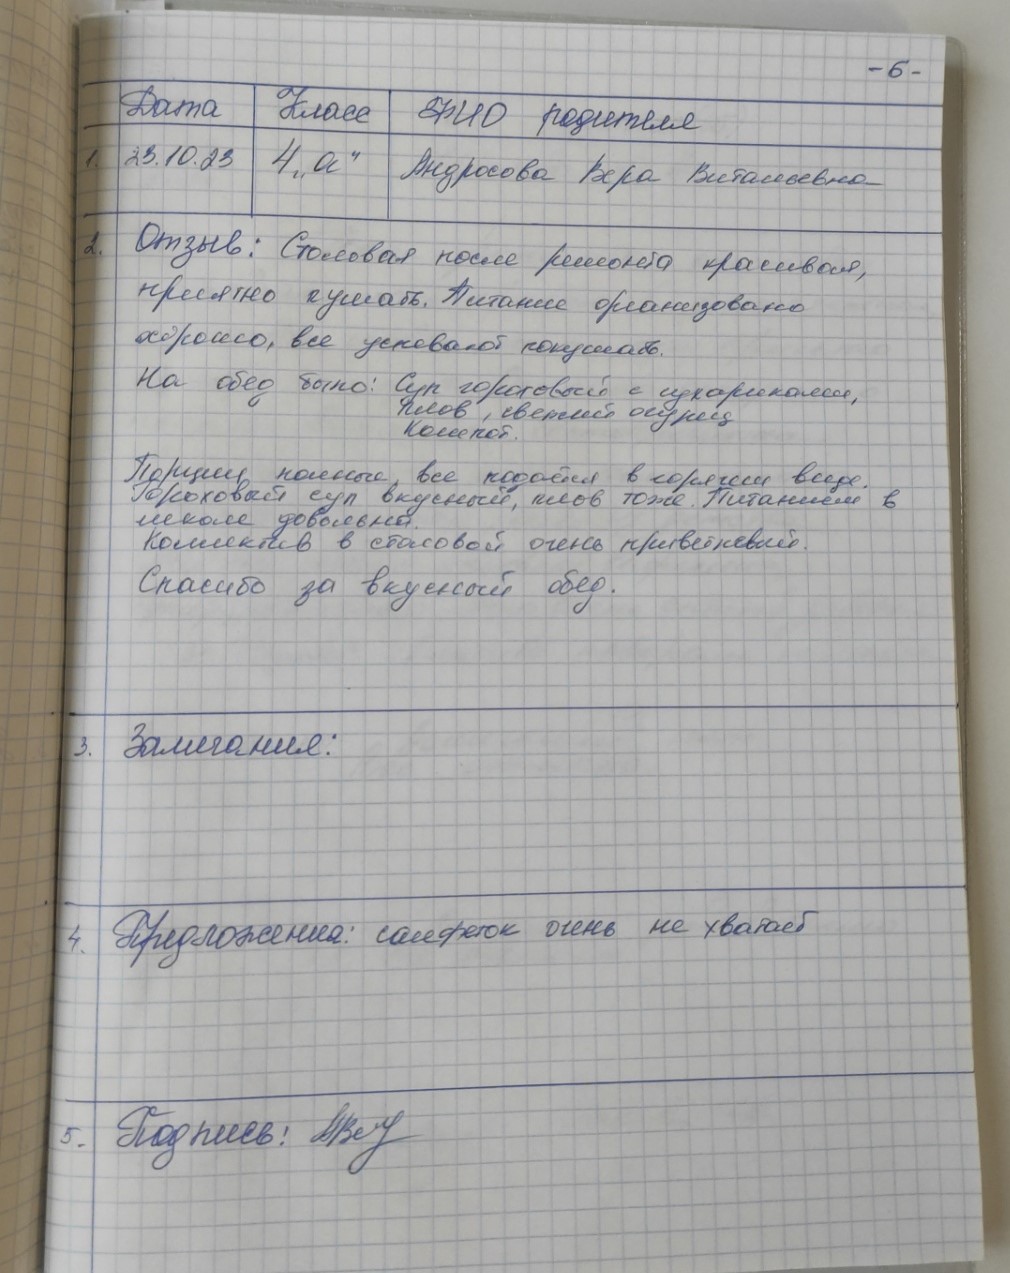 - 6 -
Дата Класс ФИО родителя
1. 23.10.23 4 „а" Андросова Вера Витальевна
2. Отзыв: Столовая после ремонта красивая,
приятно кушать. Питание организовано
хорошо, все успевают покушать.
На обед было: Суп гороховый с сухариками,
плов, свежий огурец
Компот.
Порции полные, все подаётся в горячем виде.
Гороховый суп вкусный, плов тоже. Питанием в
школе довольна.
Коллектив в столовой очень приветливый.
Спасибо за вкусный обед.
3. Замечания:
4. Предложения: салфеток очень не хватает
5. Подпись: